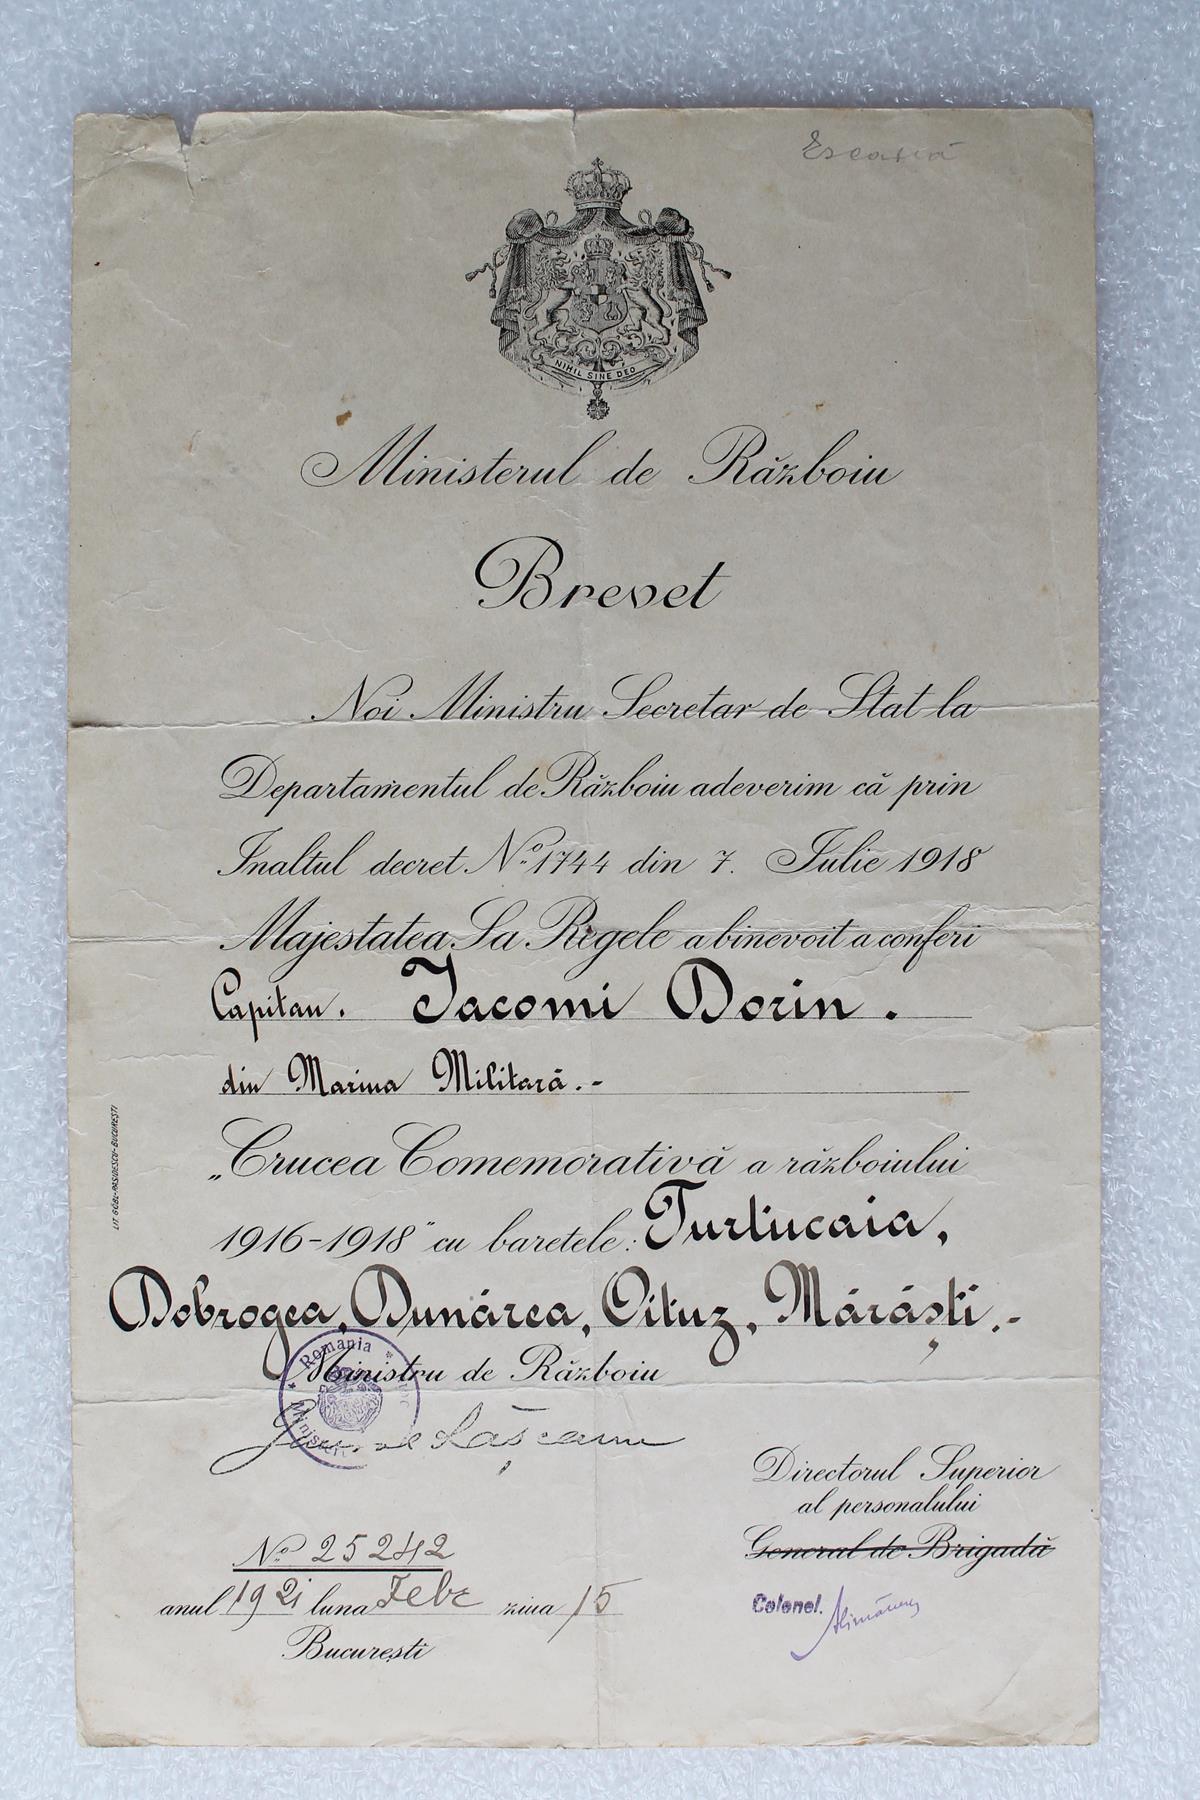 NIHIL SINE DEO
Ministerul de Războiu
Brevet
Noi Ministru Secretar de Stat la
Departamentul de Războiu adeverim că prin
Inaltul decret No. 1744 din 7. Iulie 1918
Majestatea Sa Regele a binevoit a conferi
Capitan. Iacomi Dorin.
din Marina Militară.-
„Crucea Comemorativă a războiului
1916-1918" cu baretele: Turtucaia,
Dobrogea, Dunărea, Oituz, Mărăști.-
Ministru de Războiu
România
General Rășcanu
Directorul Superior
al personalului
General de Brigadă
Colonel.
No 25242
anul 1921 luna Febr ziua 15
București
LIT. GÖBL-RASIDESCU-BUCUREȘTI